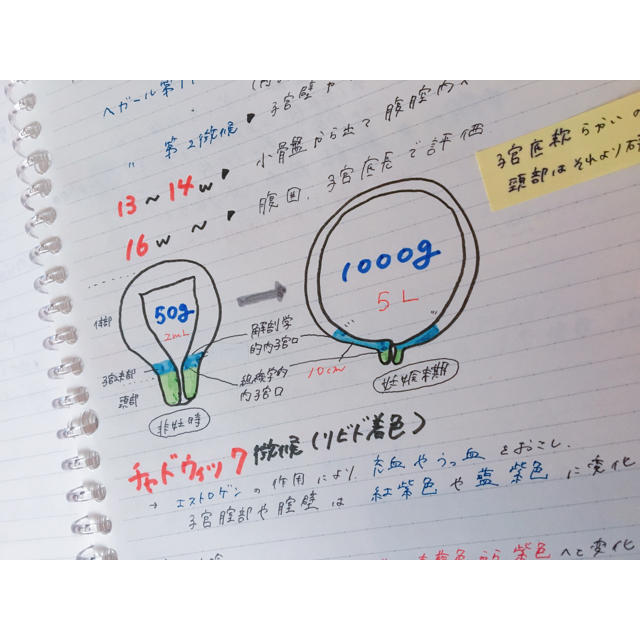 ヘガール第1
子宮壁や
〃 第2徴候
13~14w 小骨盤から出て腹腔内へ
16w~ 腹囲、子宮底長で評価
子宮底軟らかいの
頸部はそれより
50g
2mL
1000g
5L
体部
子宮峡部
頸部
解剖学的内子宮口
組織学的内子宮口
10cm
非妊時
妊娠末期
チャドウィック徴候(リビド着色)
→ エストロゲンの作用により、充血やうっ血をおこし、
子宮腟部や腟壁は紅紫色や藍紫色に変化
紫色へと変化